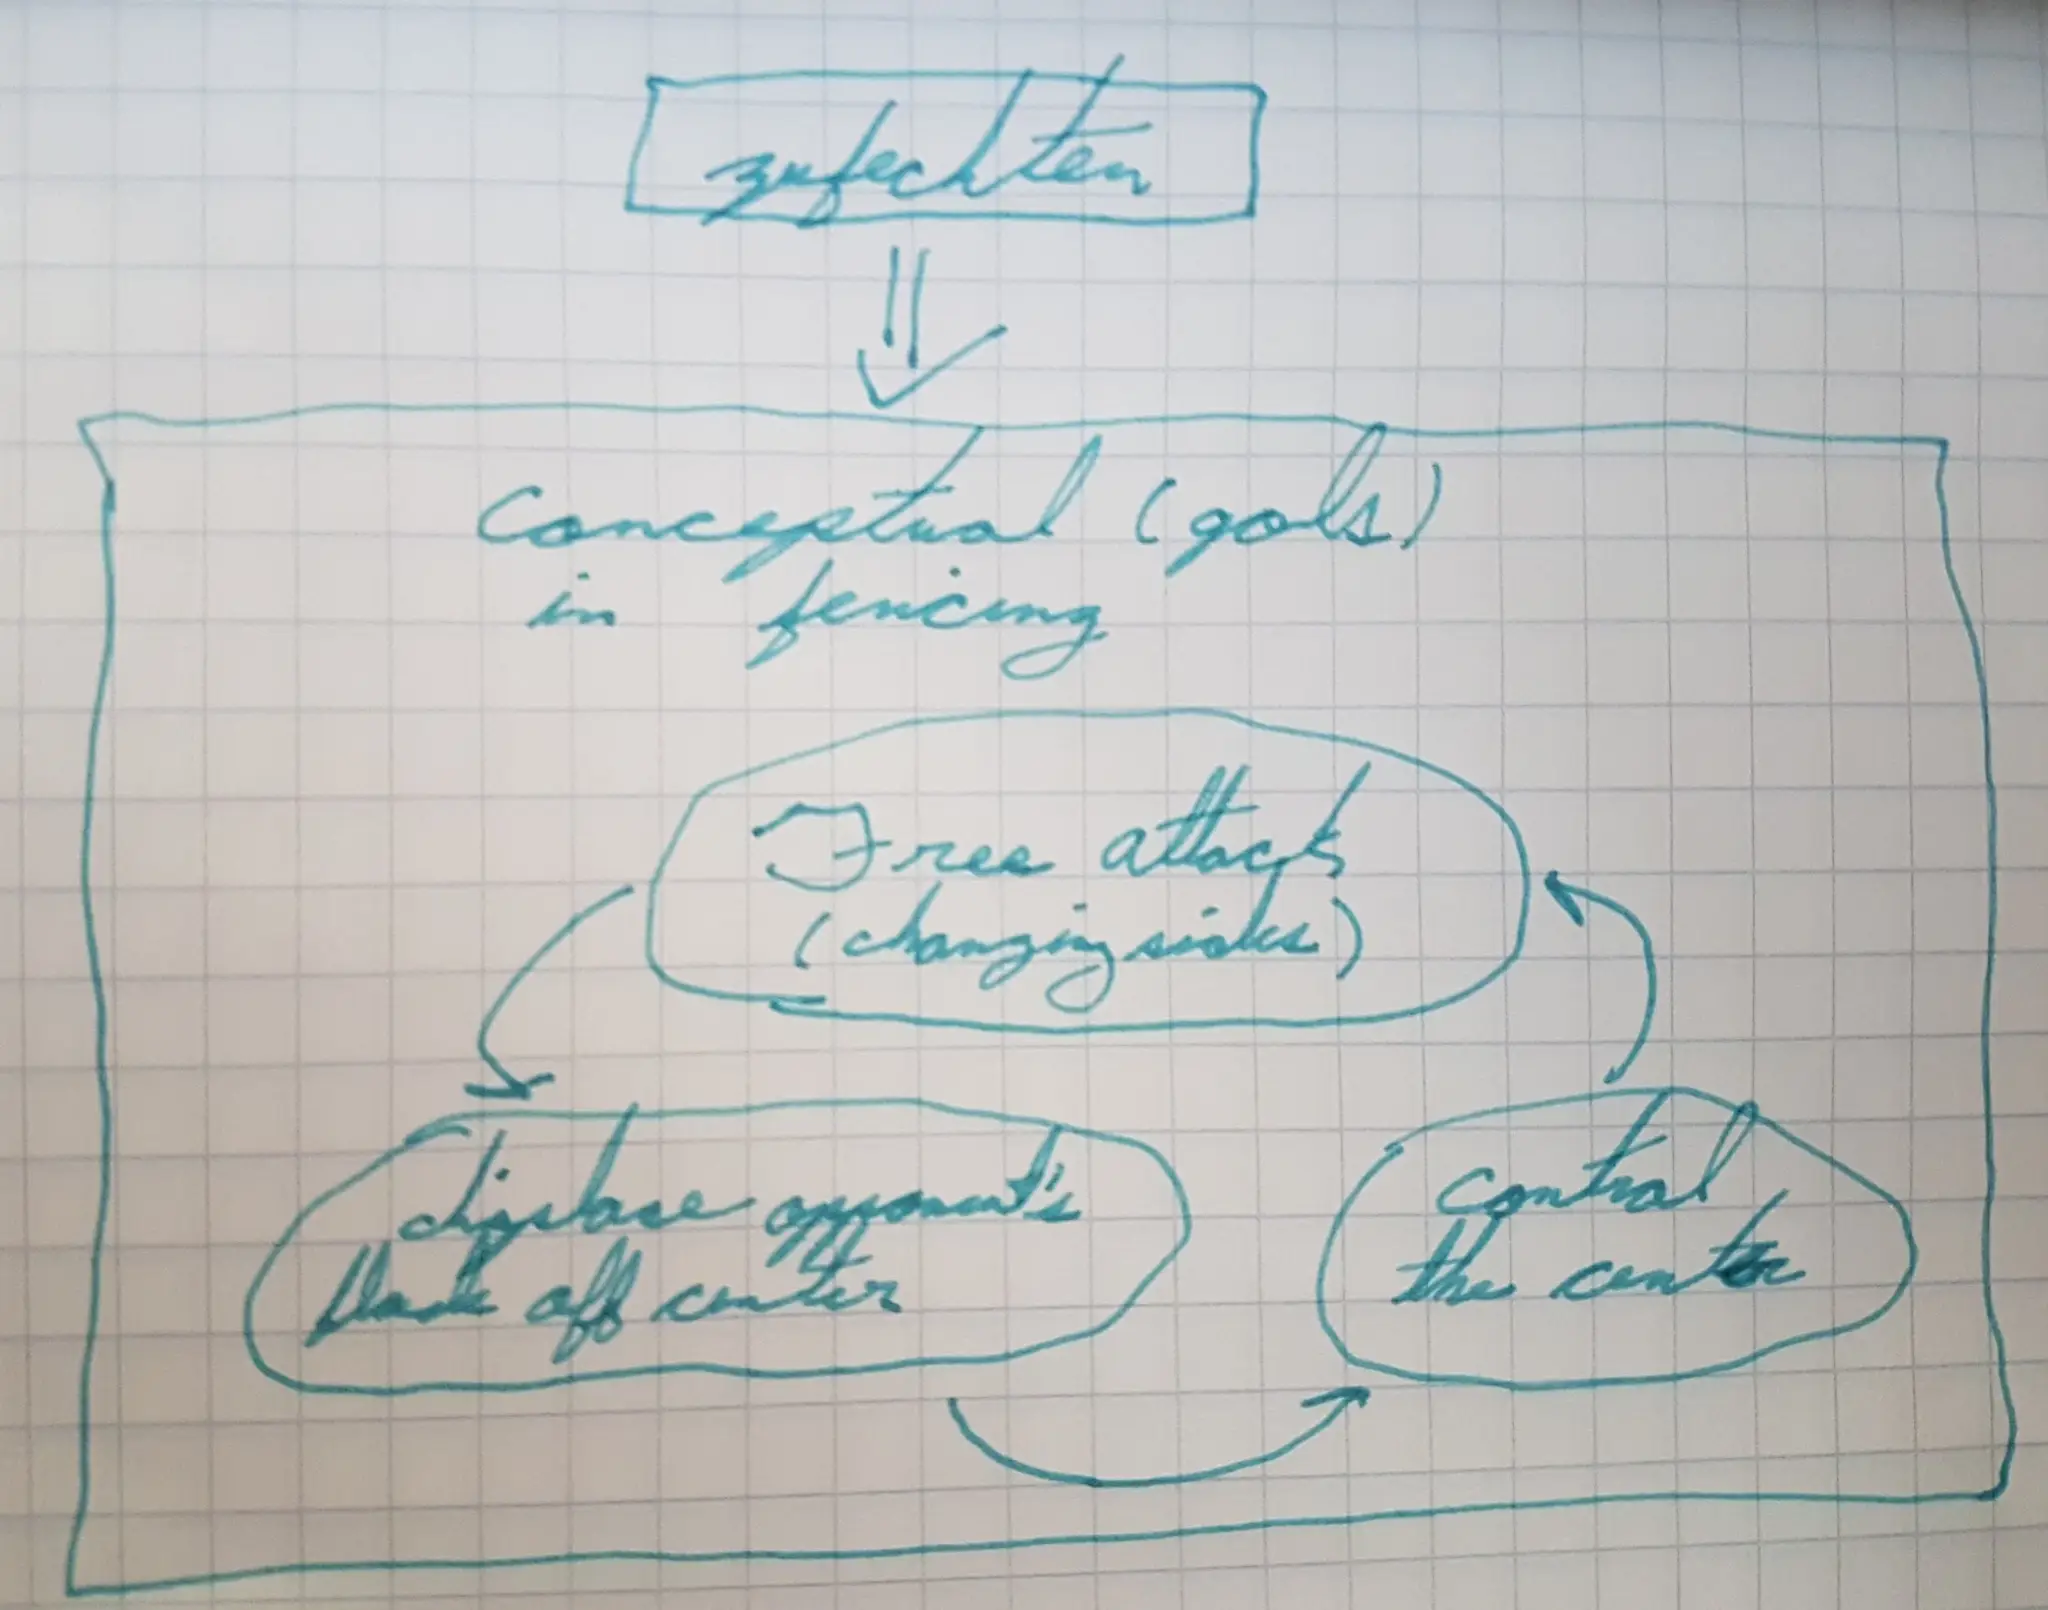 zufechten
Conceptual (gols)
in fencing
Free attack
(changing sides)
displase opponent's
blade off center
control
the center